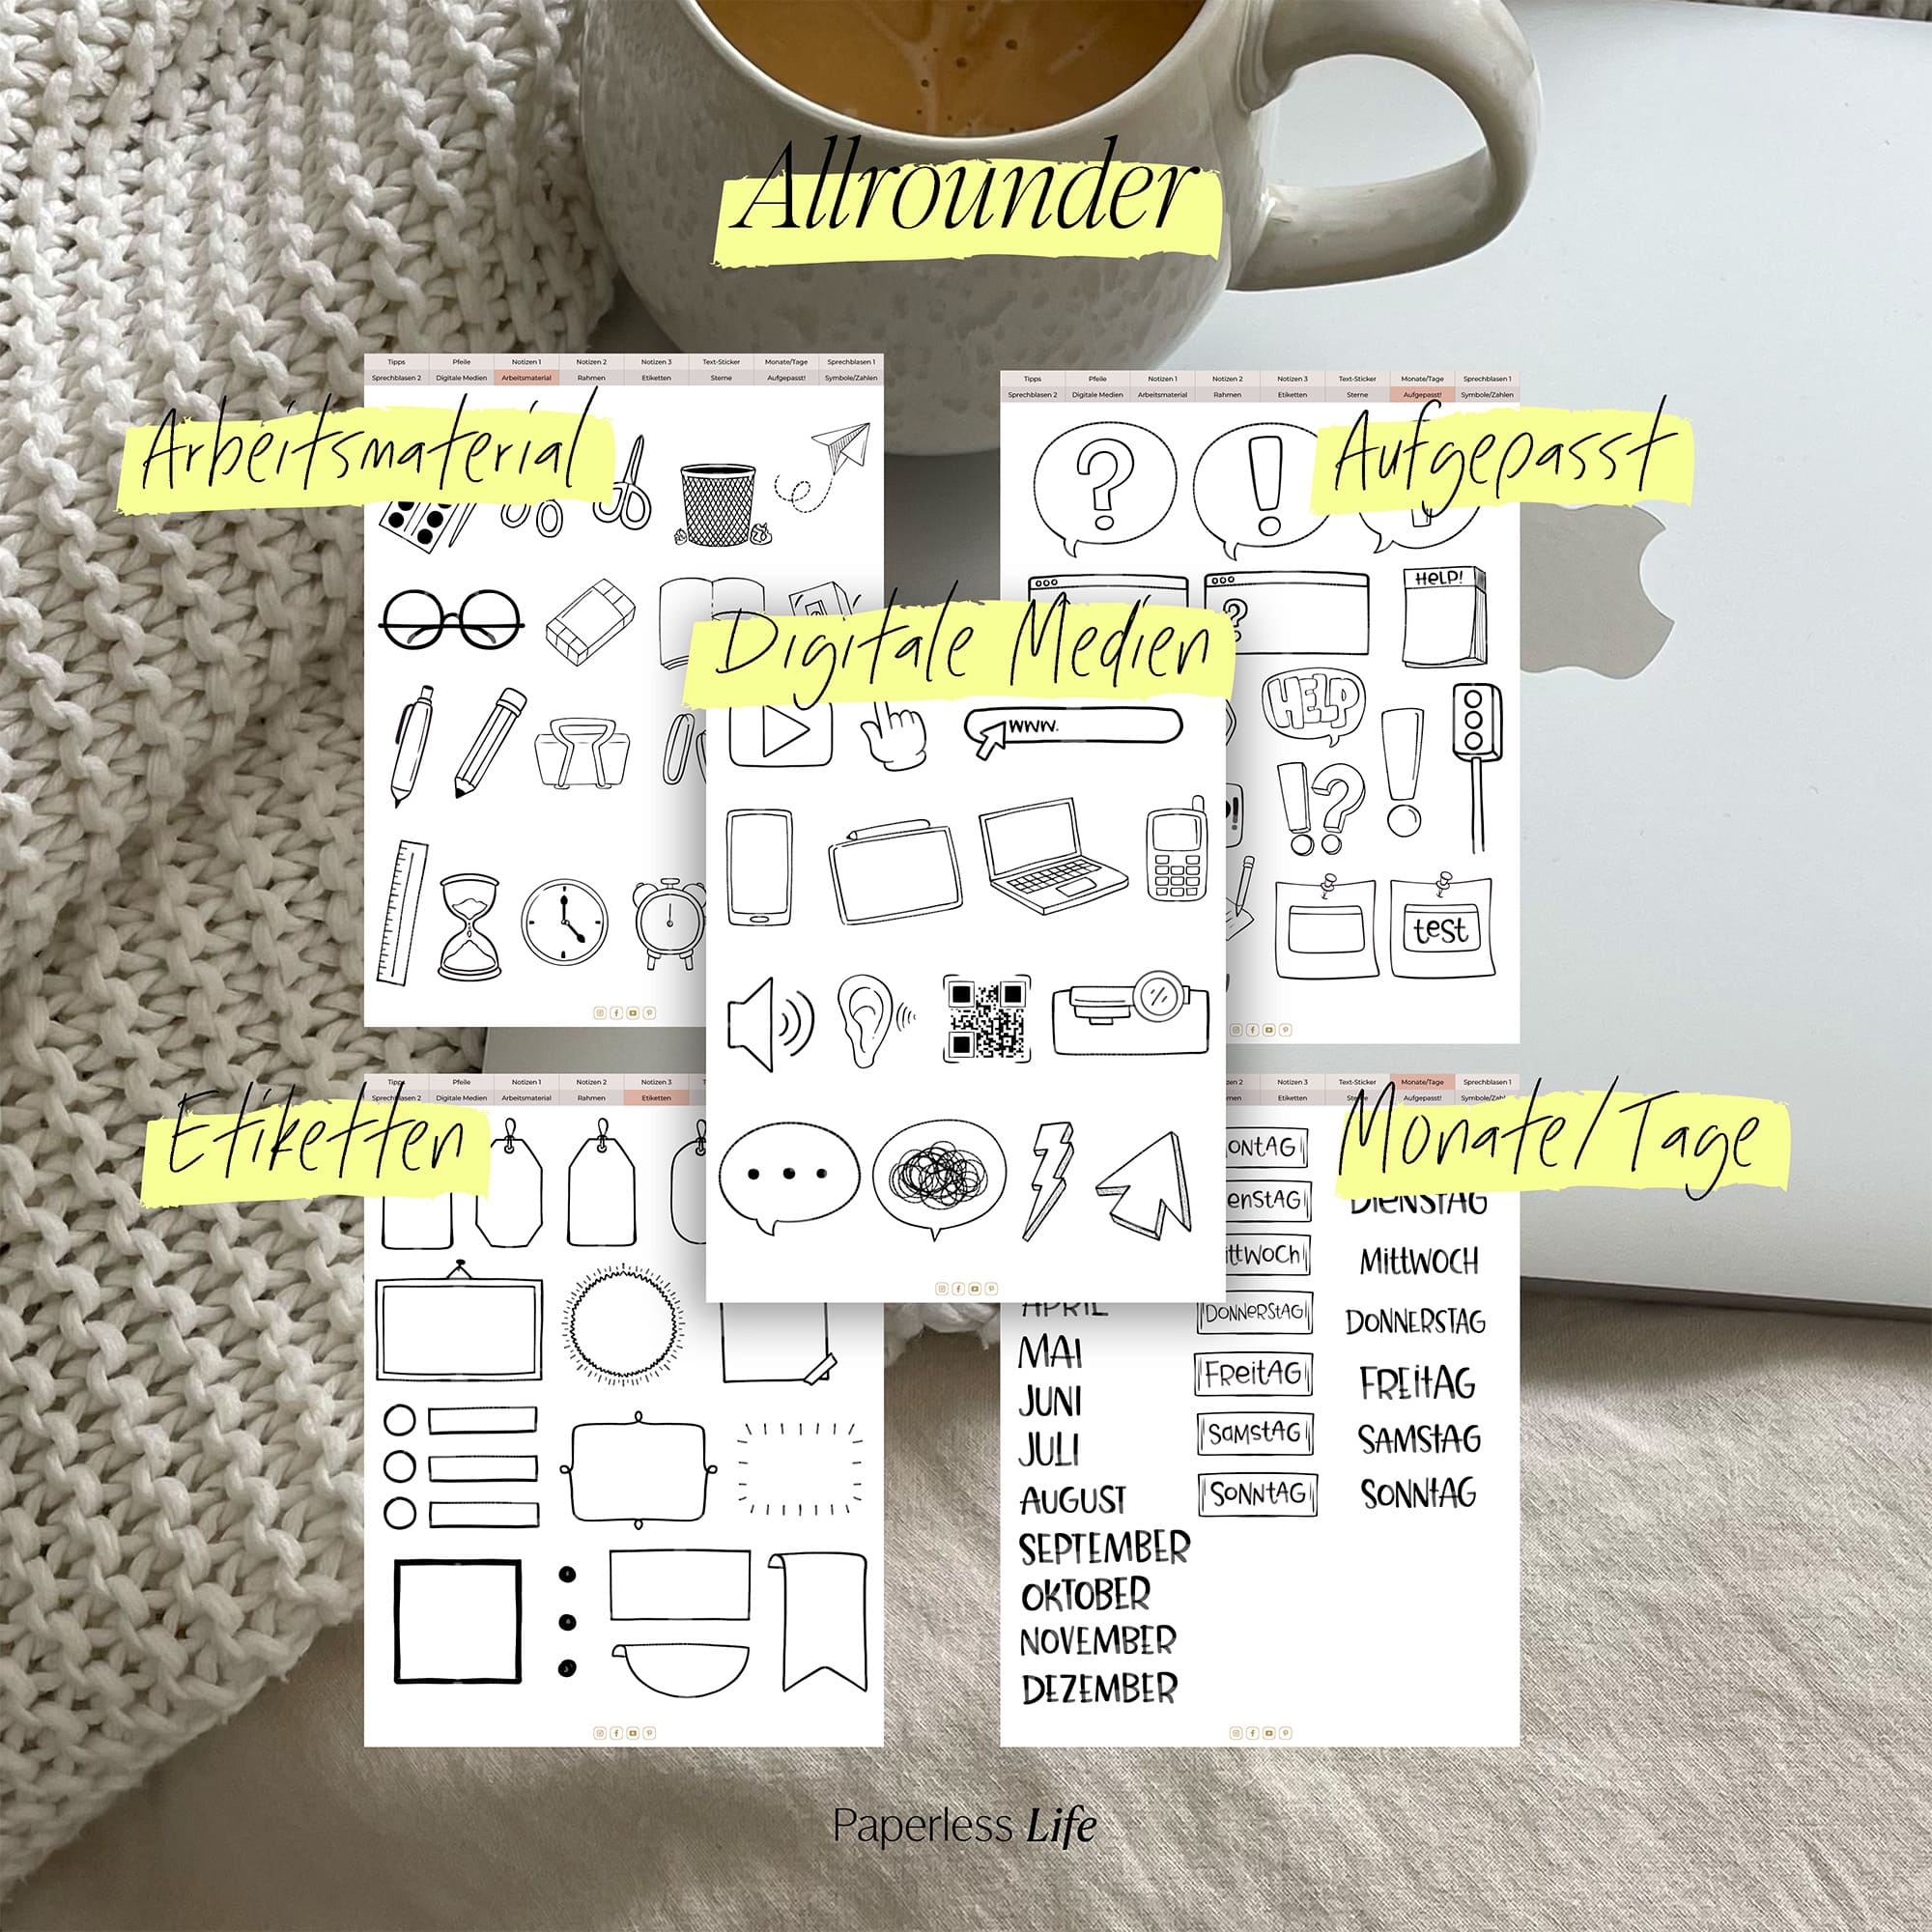 Allrounder
Tipps Pfeile Notizen 1 Notizen 2 Notizen 3 Text-Sticker Monate/Tage Sprechblasen 1
Sprechblasen 2 Digitale Medien Arbeitsmaterial Rahmen Etiketten Sterne Aufgepasst! Symbole/Zahlen
Arbeitsmaterial
Tipps Pfeile Notizen 1 Notizen 2 Notizen 3 Text-Sticker Monate/Tage Sprechblasen 1
Sprechblasen 2 Digitale Medien Arbeitsmaterial Rahmen Etiketten Sterne Aufgepasst! Symbole/Zahlen
Aufgepasst
?
!
HELP!
?
HELP
!?
!
test
Digitale Medien
www.
Tipps Pfeile Notizen 1 Notizen 2 Notizen 3
Sprechblasen 2 Digitale Medien Arbeitsmaterial Rahmen Etiketten
Etiketten
Notizen 3 Text-Sticker Monate/Tage Sprechblasen 1
Etiketten Sterne Aufgepasst! Symbole/Zahlen
Monate/Tage
APRIL
MAI
JUNI
JULI
AUGUST
SEPTEMBER
OKTOBER
NOVEMBER
DEZEMBER
ONTAG
ienStAG
ittWoch
DONNERStAG
FReitAG
SaMStAG
SONNtAG
DIENSTAG
MIttWOCH
DONNERSTAG
FREItAG
SAMStAG
SONNtAG
Paperless Life